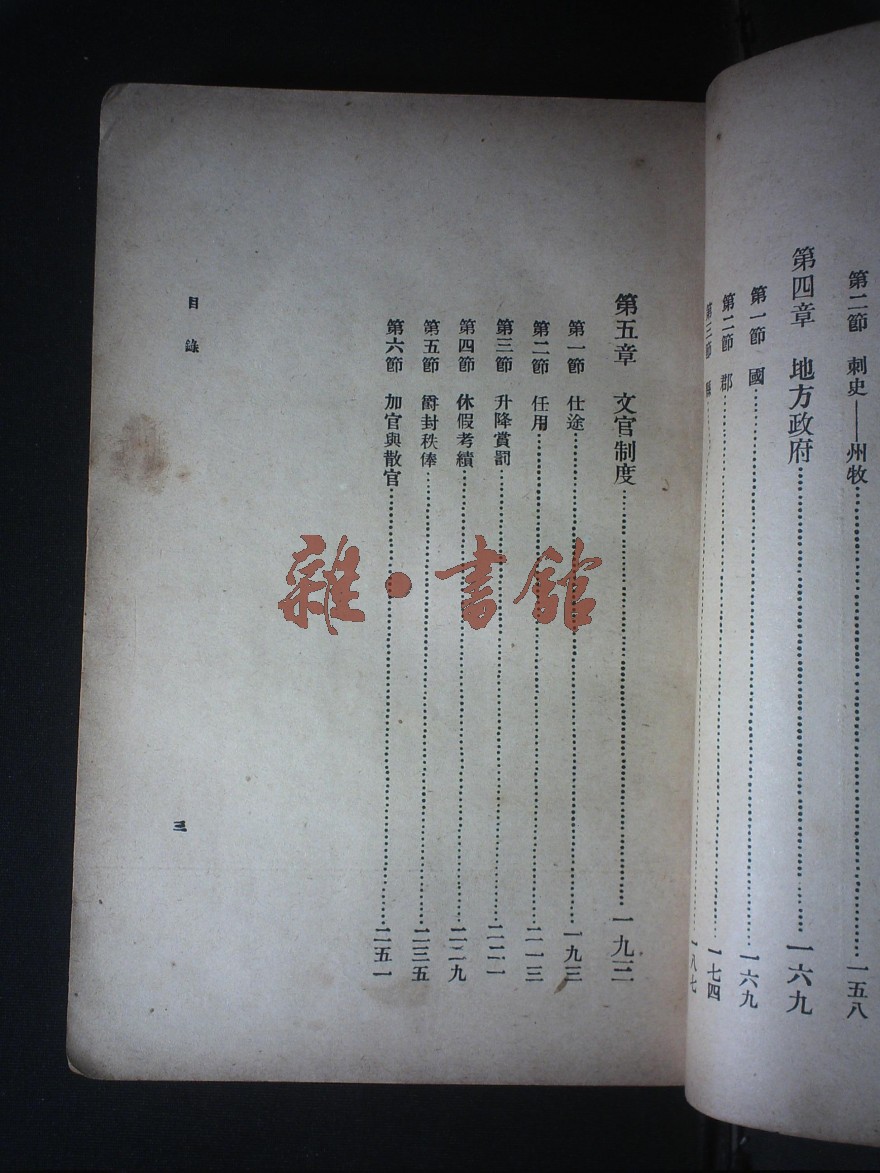 第二節 刺史——州牧 一五八
第四章 地方政府 一六九
第一節 國 一六九
第二節 郡 一七四
第三節 縣 一八七
第五章 文官制度 一九三
第一節 仕途 一九三
第二節 任用 二一三
第三節 升降賞罰 二二一
第四節 休假考績 二二九
第五節 爵封秩俸 二三五
第六節 加官與散官 二五一
目錄
三
雜·書館